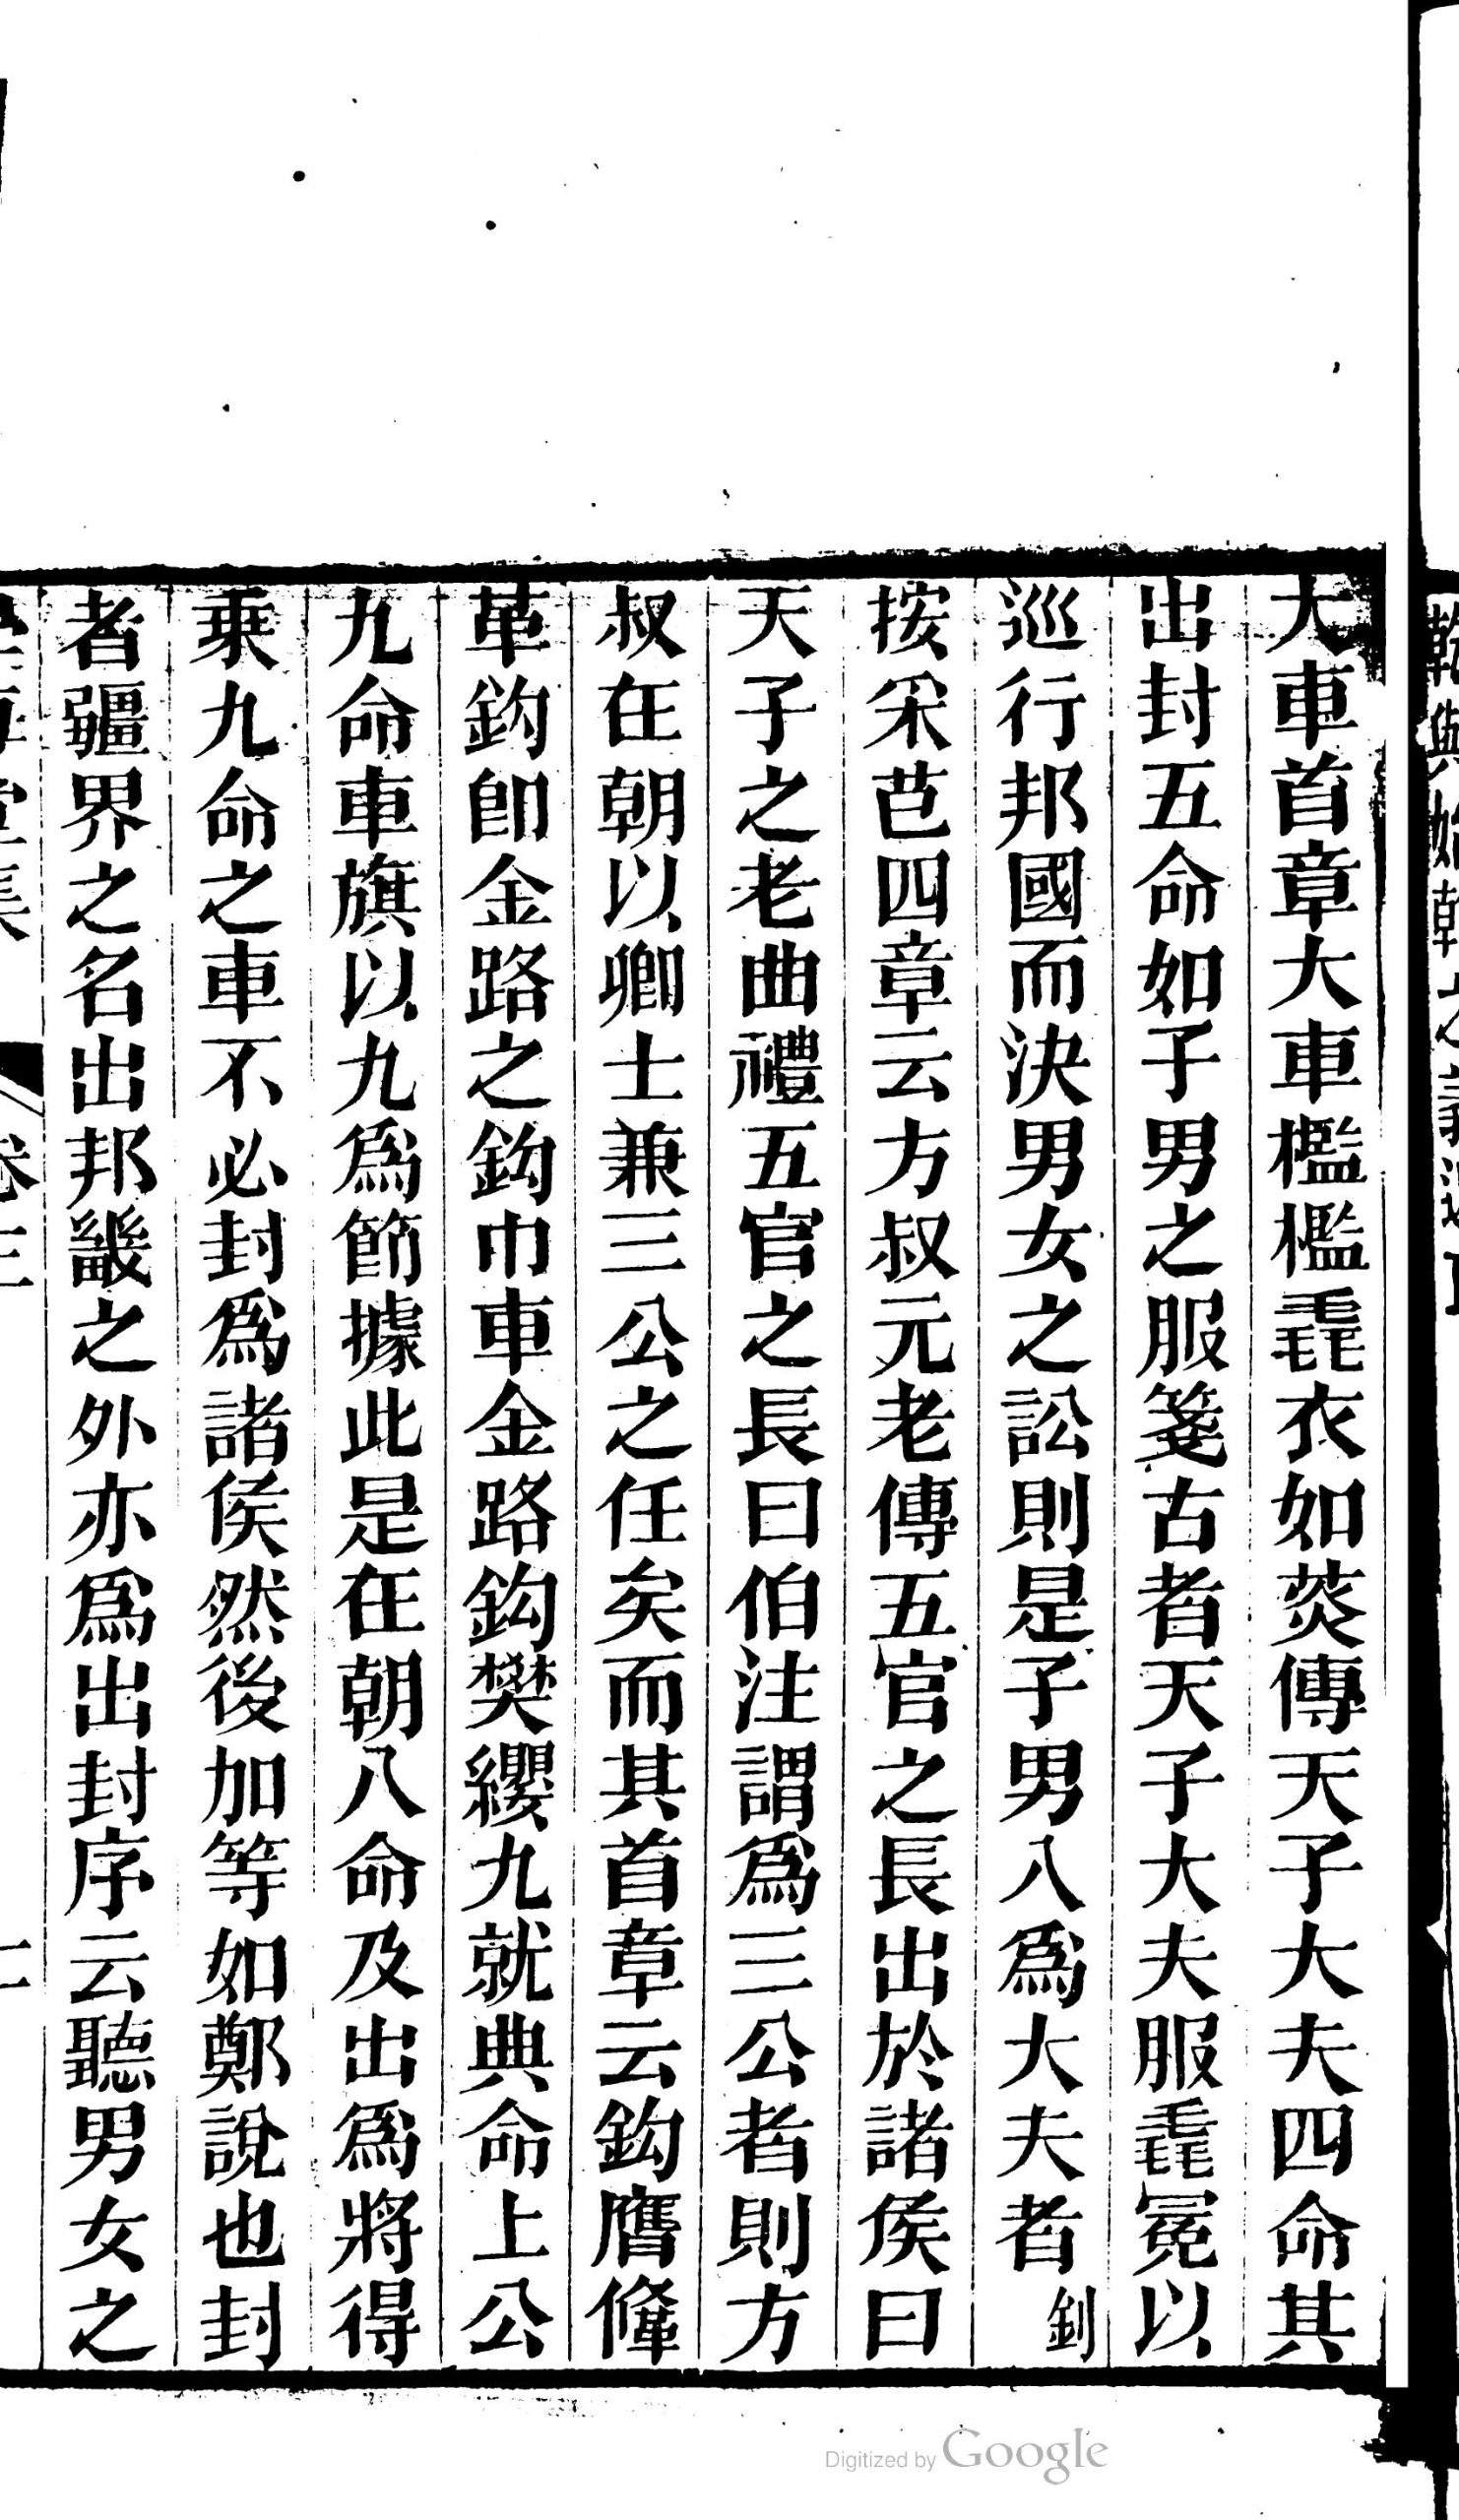 大車首章大車檻檻毳衣如菼傳天子大夫四命其
出封五命如子男之服箋古者天子大夫服毳冕以
巡行邦國而決男女之訟則是子男入爲大夫者 釗
按采芑四章云方叔元老傳五官之長出於諸侯曰
天子之老曲禮五官之長曰伯注謂爲三公者則方
叔在朝以卿士兼三公之任矣而其首章云鉤膺鞗
革鉤卽金路之鉤巾車金路鉤樊纓九就典命上公
九命車旗以九爲節據此是在朝八命及出爲將得
乘九命之車不必封爲諸侯然後加等如鄭說也封
者疆界之名出邦畿之外亦爲出封序云聽男女之
Digitized by Google